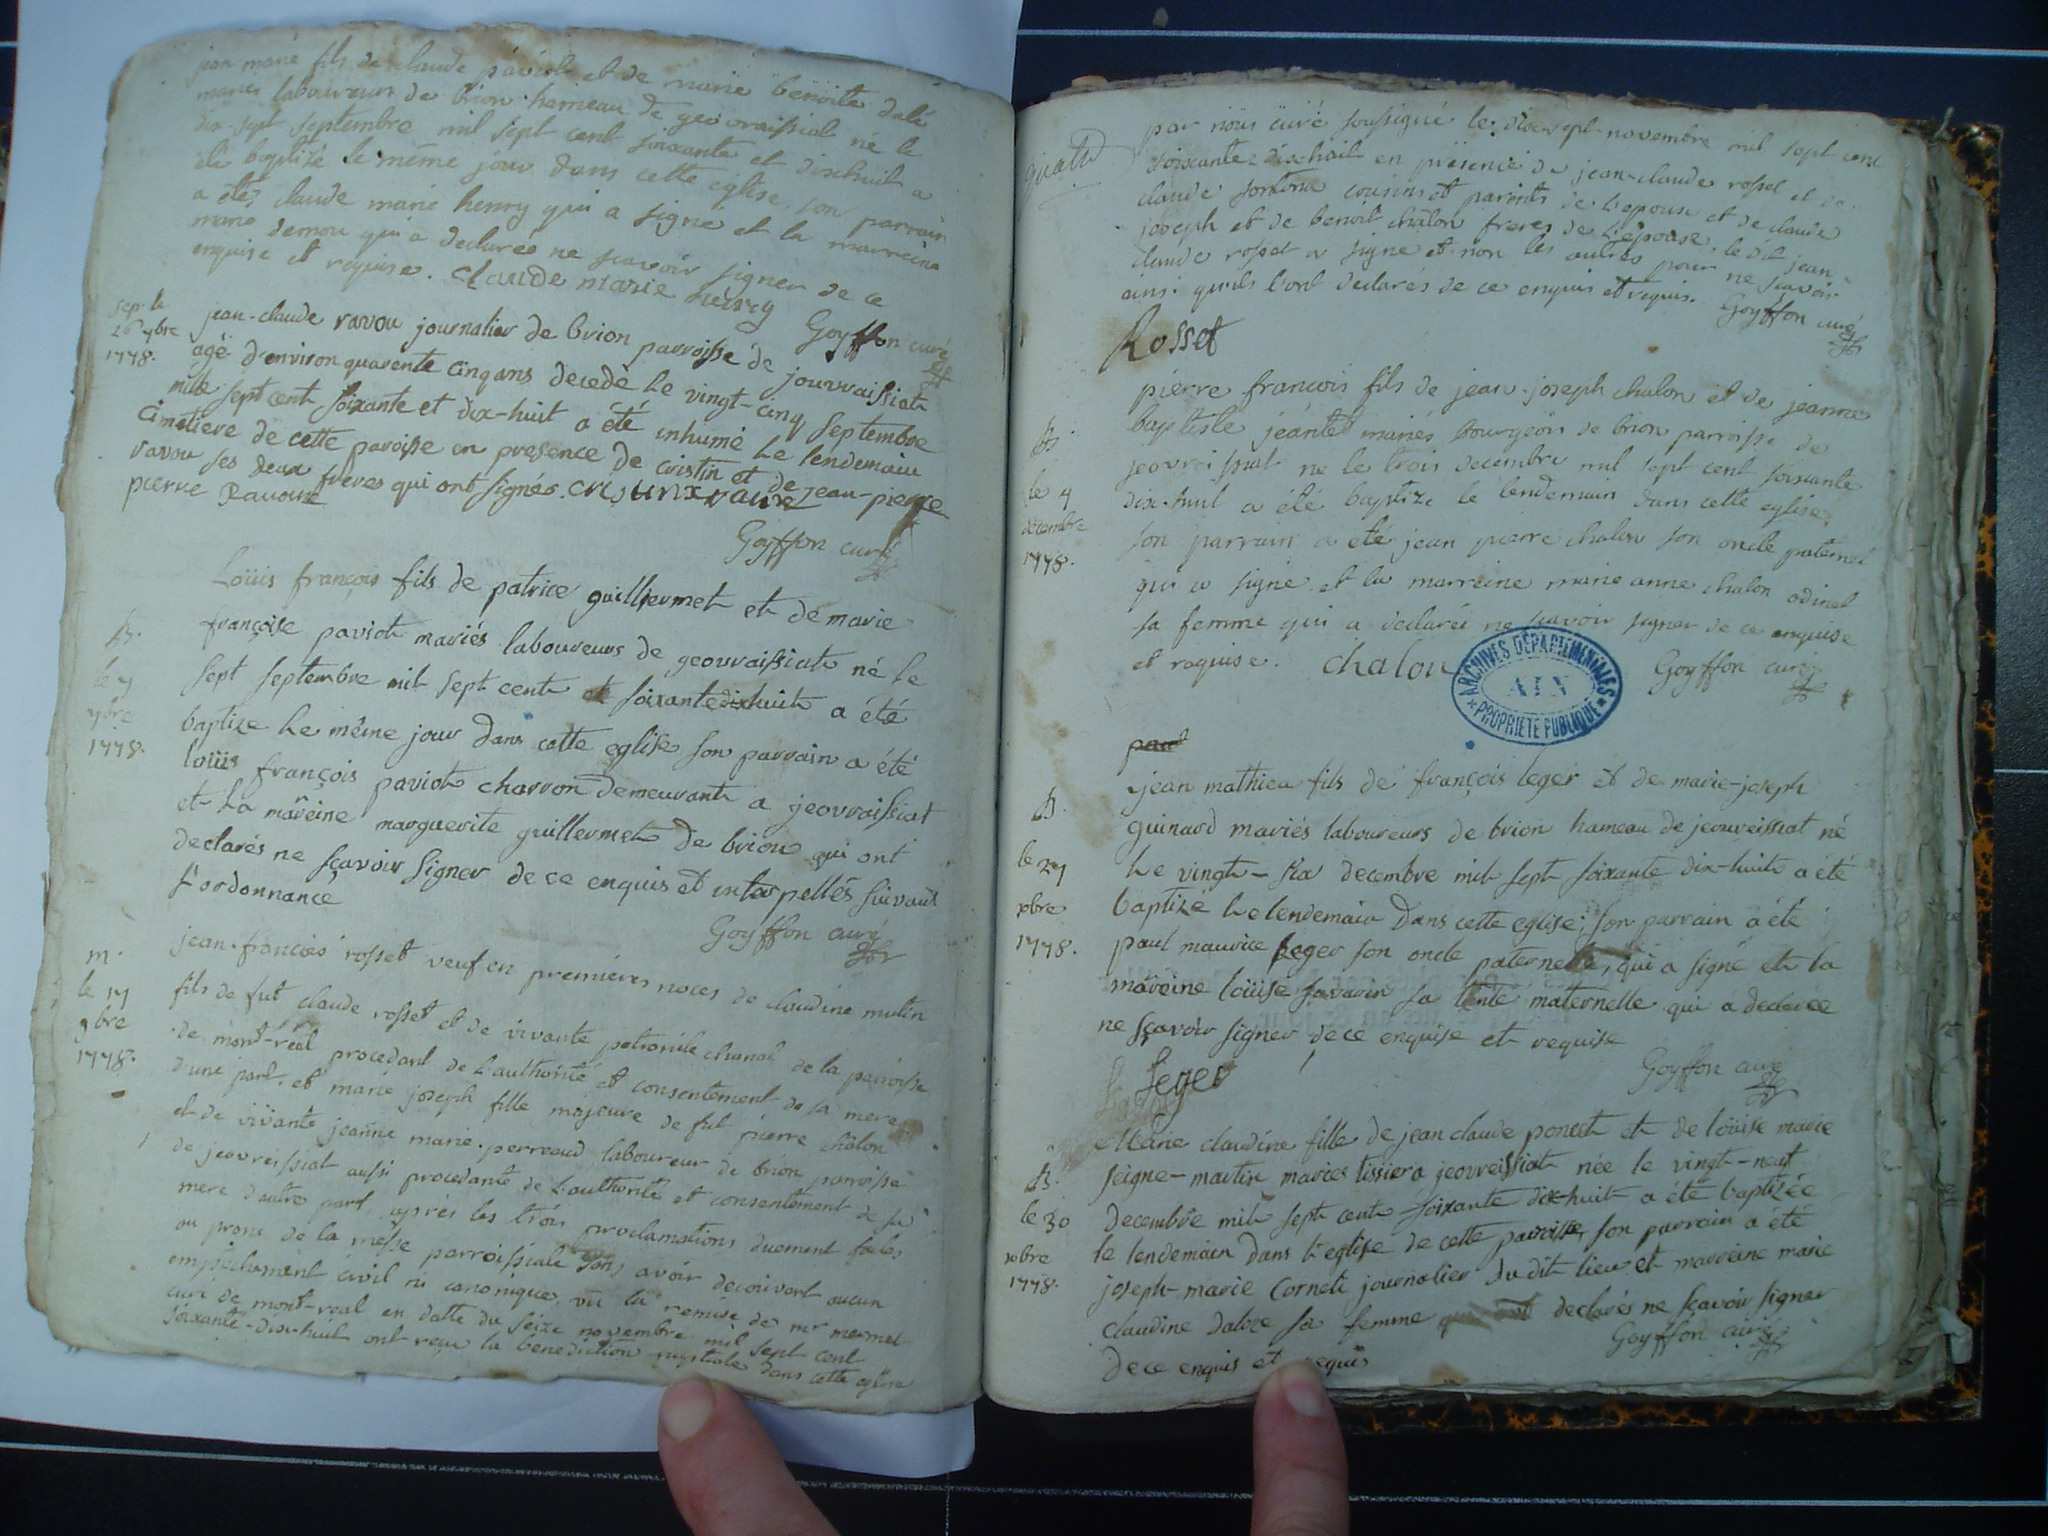 jean marie fils de claude paviot et de marie benoite dalé
mariés laboureurs de brion hameau de geovraissiat né le
dix-sept septembre mil sept cent soixante et dixhuit a
été baptizé le même jour dans cette eglise, son parrain
a été claude marie henry qui a signé et la marreine
marie demou qui a declarée ne scavoir signer de ce
enquise et requise. claude marie henry
Goyffon curé
sep. le
26 7bre
1778.
jean-claude ravou journalier de brion parroisse de jourvraissiat
agé d'environ quarente cinq ans decedé le vingt-cinq septembre
mille sept cent soixante et dix-huit a été inhumé le lendemain
cimetiere de cette paroisse en presence de cristin et de jean-pierre
ravou ses deux freres qui ont signés.
pierre Ravoux
Goyffon curé
B.
le 7
7bre
1778.
Loüis françois fils de patrice guilliermet et de marie
françoise paviot mariés laboureurs de geovraissiat né le
sept septembre mil sept cent et soixante dixhuit a été
baptize le même jour dans cette eglise son parrain a été
loüis françois paviot charron demeurant a jeovraissiat
et la mareine marguerite guillermet de brion qui ont
declarés ne sçavoir signer de ce enquis et interpellés suivant
l'ordonnance
Goyffon curé
m.
le 17
9bre
1778.
jean-francois rosset veuf en premiéres noces de claudine mutin
fils de fut claude rosset et de vivante petronile chanal de la parroisse
de mont-réal procedant de l'authorité et consentement de sa mere
d'une part, et marie joseph fille majeure de fut pierre châlon
et de vivante jeanne marie perreaud laboureur de brion parroisse
de jeovreissiat aussi procedante de l'authorité et consentement de sa
mere d'autre part, aprés les trois proclamations duement faites
au prone de la messe parroissiale sans avoir decouvert aucun
empêchement civil ni canonique, vu la remise de mr mermet
curé de mont-real en datte du seize novembre mil sept cent
soixante-dix-huit ont reçu la benediction nuptiale dans cette eglise
par nous curé soussigné le dixsept novembre mil sept cent
soixante dixhuit en présence de jean-claude rosset et de
claude cousins et parents de l'epoux et de claude
joseph et de benoit châlon freres de l'épouse. le dit jean
claude rosset a signé et non les autres pour ne scavoir
ainsi qu'ils l'ont declarés de ce enquis et requis.
Goyffon curé
Rosset
B.
le 4
decembre
1778.
pierre francois fils de jean-joseph chalon et de jeanne
baptiste jéante mariés bourgeois de brion parroisse de
jeovreissiat né le trois decembre mil sept cent soixante
dix-huit a été baptizé le lendemain dans cette eglise,
son parrain a été jean pierre chalon son oncle paternel
qui a signé et la marreine marie anne chalon odinet
sa femme qui a declarée ne scavoir signer de ce enquise
et requise. chalon
Goyffon curé
ARCHIVES DÉPARTEMENTALES
AIN
PROPRIÉTÉ PUBLIQUE
B.
le 27
xbre
1778.
jean mathieu fils de françois leger et de marie-joseph
guinard mariés laboureurs de brion hameau de jeouveissiat né
le vingt-six decembre mil sept soixante dix-huit a été
baptizé le lendemain dans cette eglise, son parrain a été
paul maurice leger son oncle paternelle, qui a signé et la
mareine loüise savarin sa tente maternelle qui a declarée
ne sçavoir signer de ce enquise et requise
Goyffon curé
Leger
B.
le 30
xbre
1778.
Marie claudine fille de jean claude poncet et de loüise marie
seigne-martin mariés tissier a jeovreissiat née le vingt-neuf
decembre mil sept cent soixante dix-huit a été baptisée
le lendemain dans l'eglise de cette paroisse, son parrain a été
joseph-marie cornet journalier du dit lieu et marreine marie
claudine daloze sa femme qui ont declarés ne sçavoir signer
de ce enquis et requis
Goyffon curé